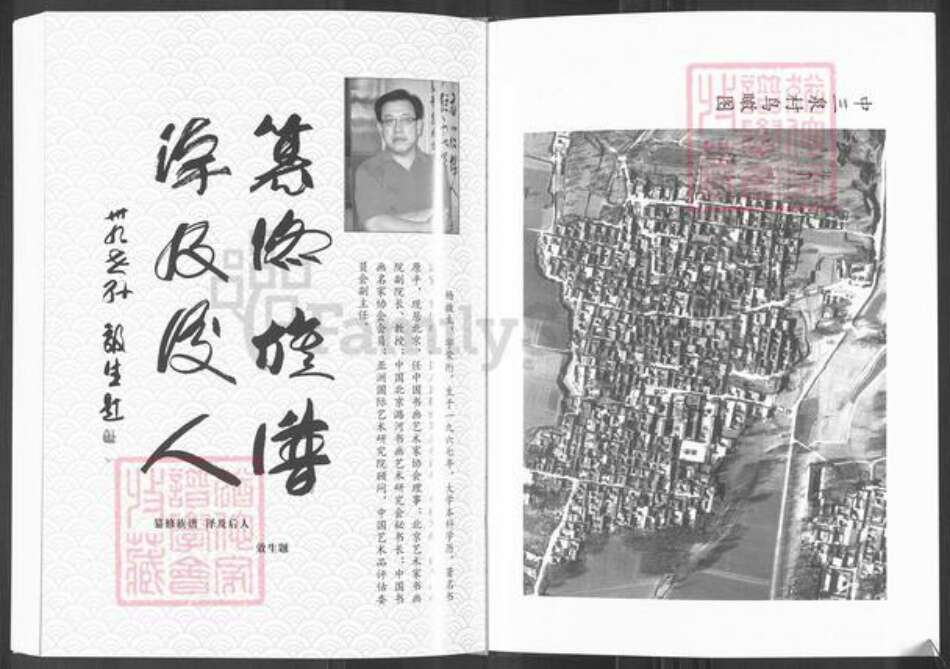 纂修族谱
泽及后人
世孙 效生题
纂修族谱 泽及后人
效生题
生于一九六七年,大学本科学历,著名书
原平,现居北京,任中国书画艺术家协会理事;北京艺术家书画
院副院长、教授;中国北京潞河书画艺术研究会秘书长;中国书
画名家协会会员;亚洲国际艺术研究院顾问,中国艺术品评估委
员会副主任。
中三泉村鸟瞰图